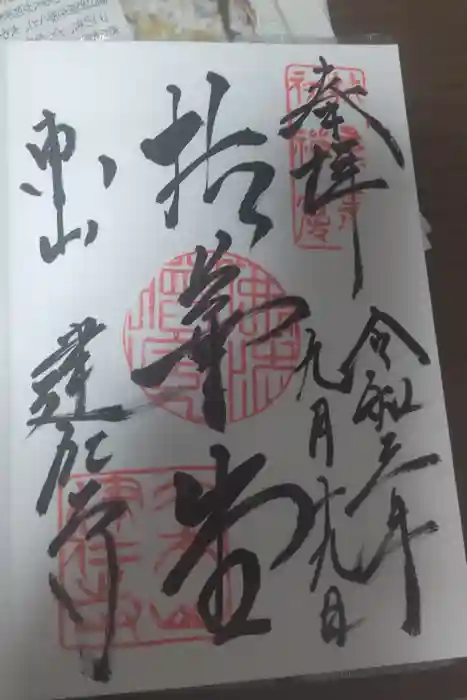 奉拝
令和三年
九月十九日
拈華堂
東山
建仁寺